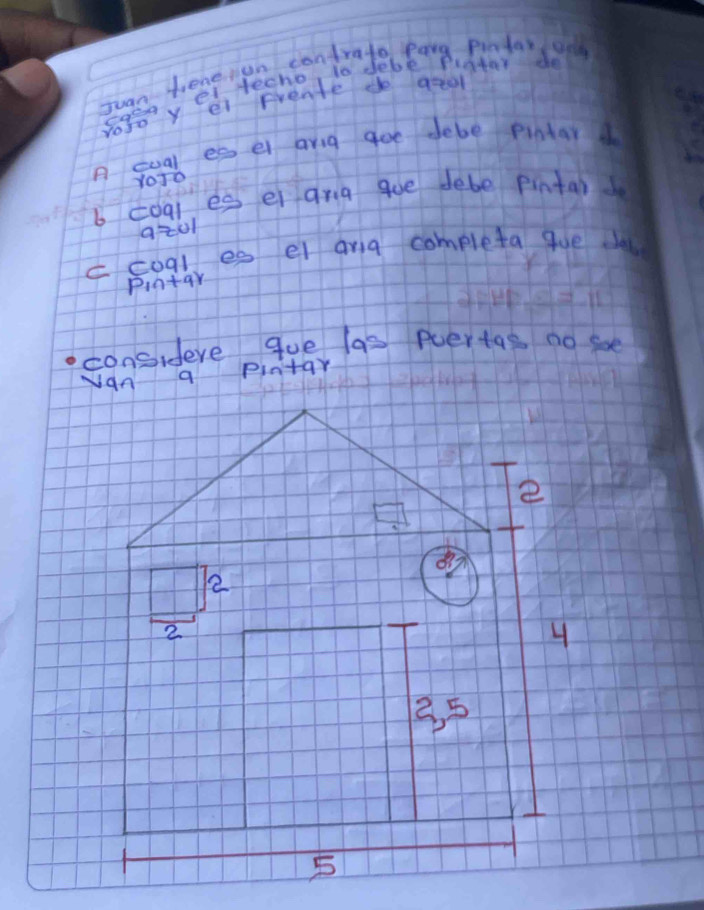 Juan tiene un contrato para pintar una
casa y el techo lo debe pintar de
rojo y el Frente de azol
A cual es el aria que debe pintar de
rojo
b coal es el aria que debe pintar de
azul
c coal es el aria completa que debe
Pintar
• considere que las puertas no soe
van a Pintar
2
2
2
4
2,5
5